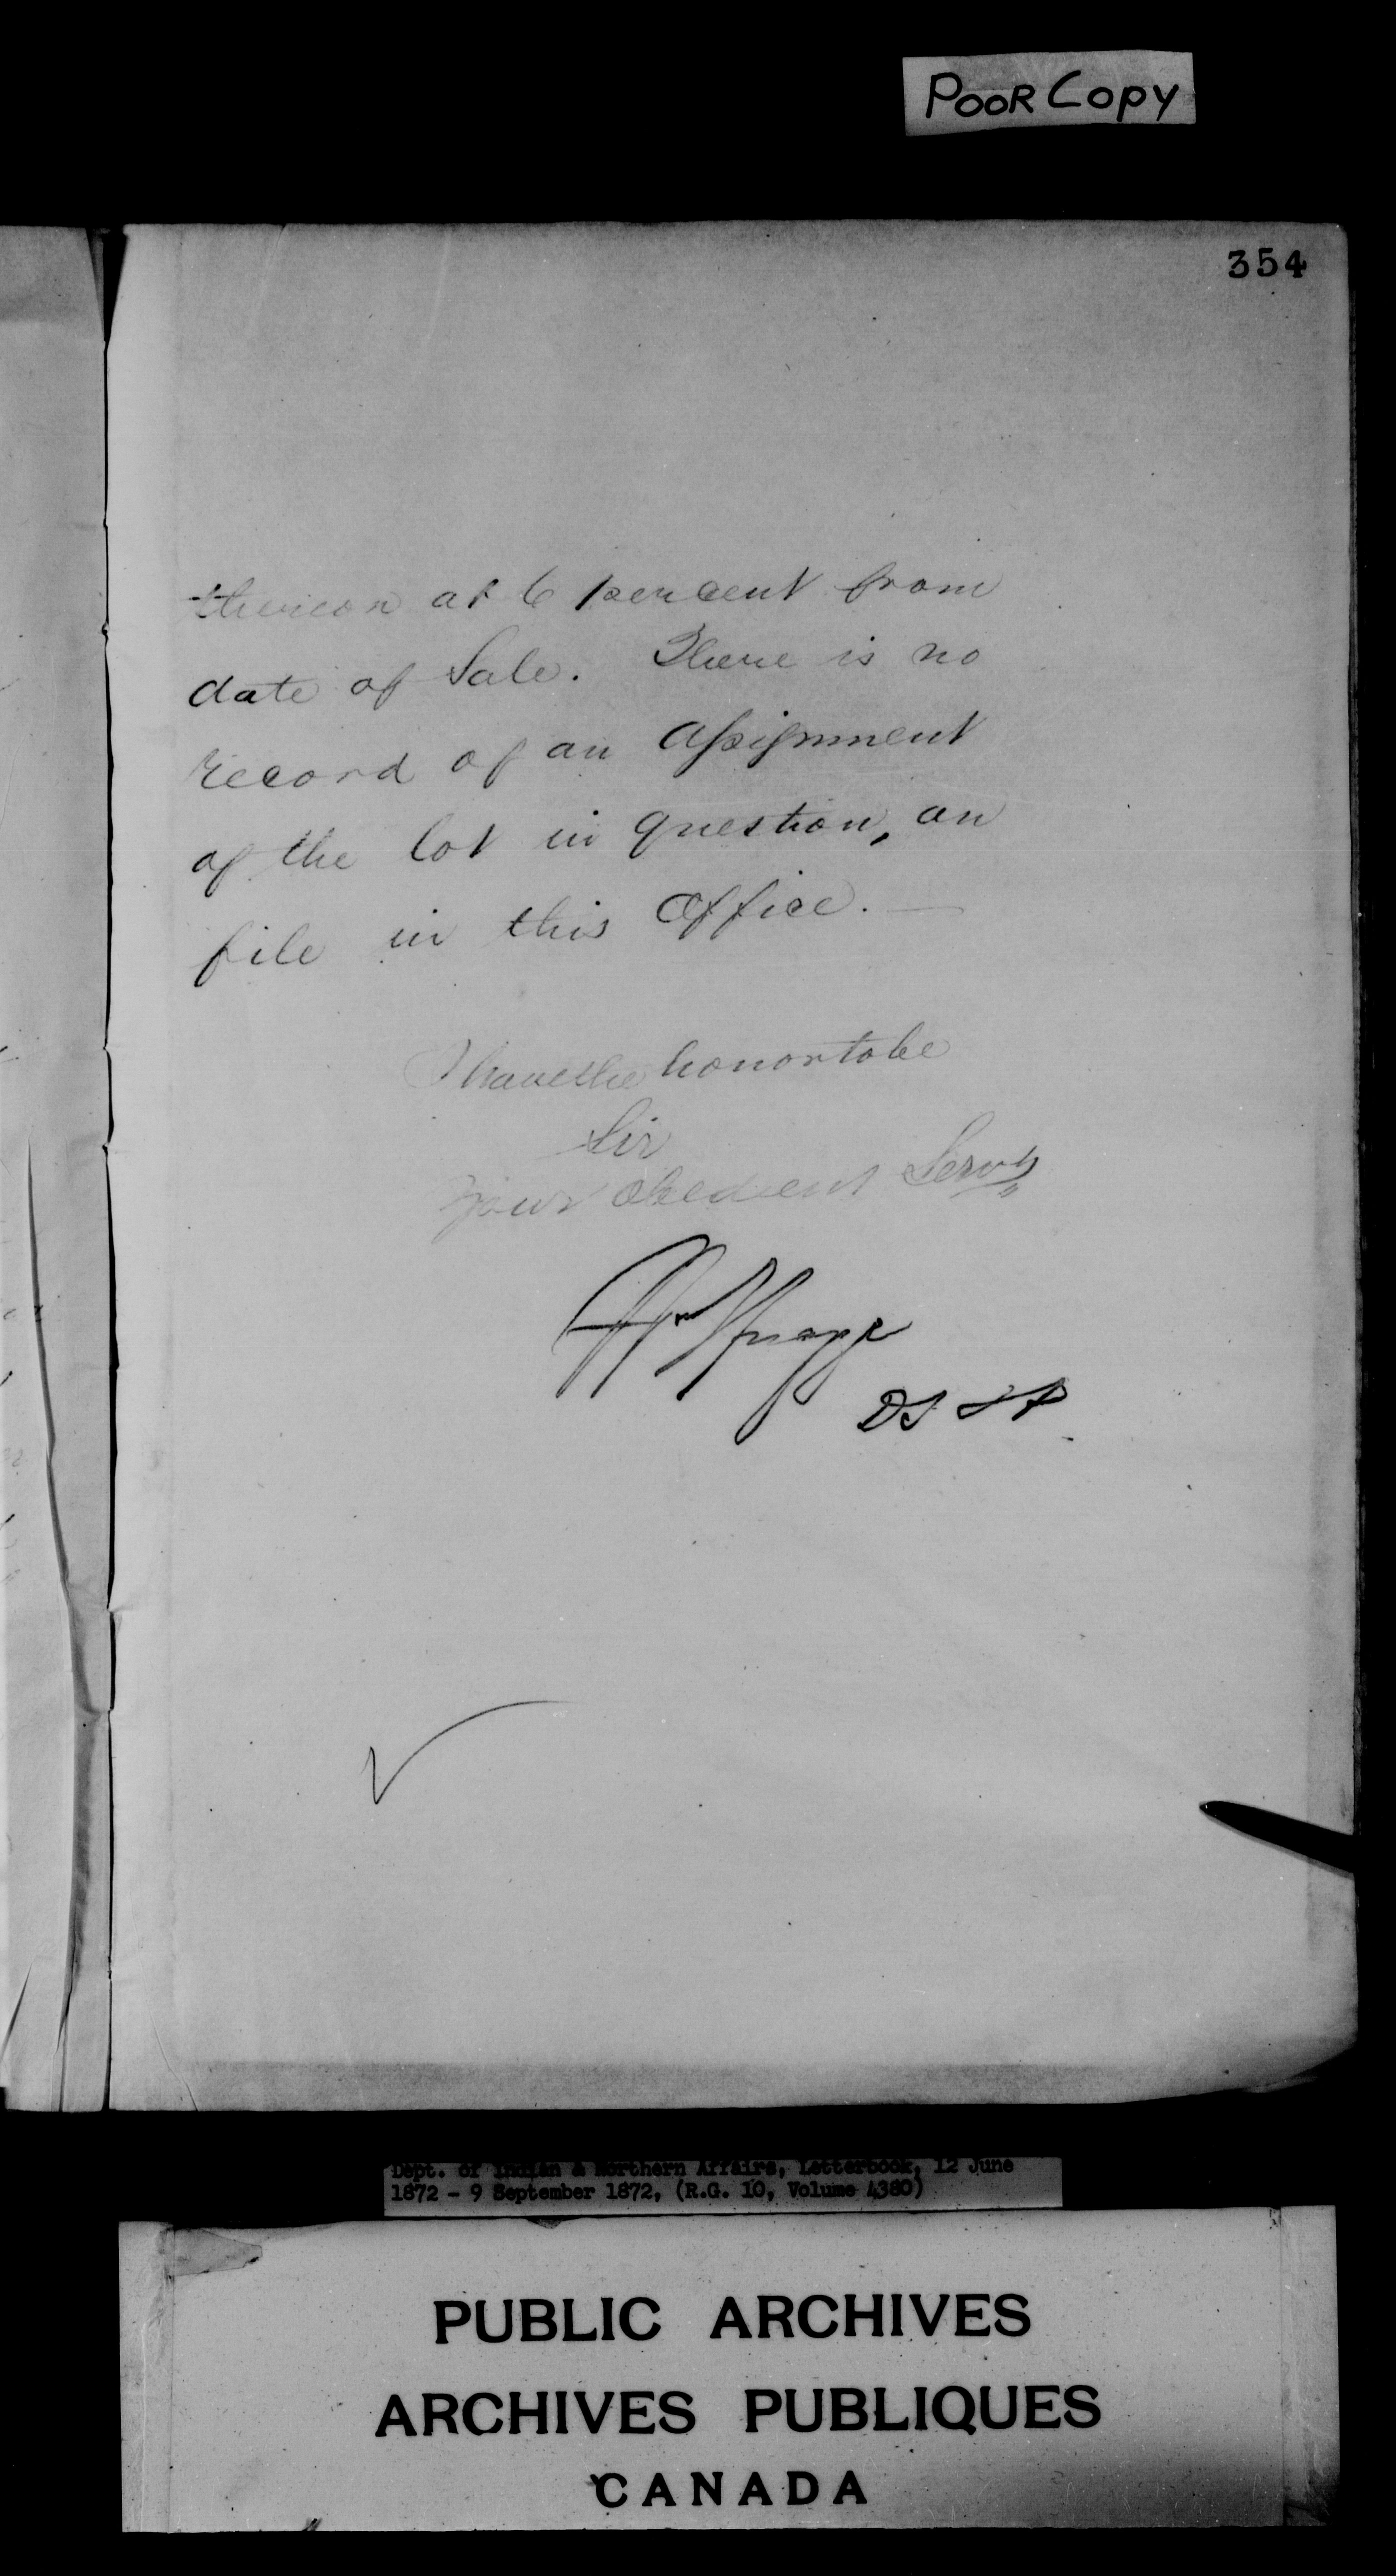 POOR Copy
354
thereon at 6 percent from
date of Sale. There is no
record of an assignment
of the lot in question, on
file in this Office. —
I have the honor to be
Sir
Your obedient Servt
Dept. of Indian & Northern Affairs, Letterbook, 12 June
1872 - 9 September 1872, (R.G. 10, Volume 4380)
PUBLIC ARCHIVES
ARCHIVES PUBLIQUES
CANADA